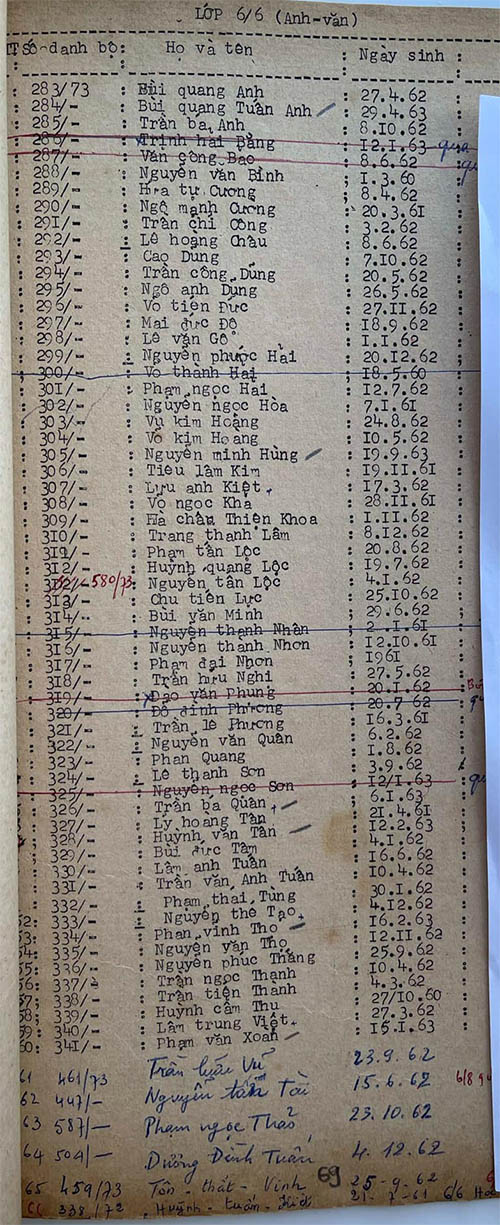 LỚP 6/6 (Anh-văn)
TT Số danh bộ: Họ và tên : Ngày sinh :
: 283/73 : Bùi quang Anh : 27.4.62
: 284/- : Bùi quang Tuấn Anh : 29.4.63
: 285/- : Trần bá Anh : 8.10.62
: 286/- : Trịnh hải Bằng : 12.1.63
: 287/- : Văn công Bao : 8.6.62
: 288/- : Nguyễn văn Bình : 1.3.60
: 289/- : Hứa tự Cường : 8.4.62
: 290/- : Ngô mạnh Cường : 20.3.61
: 291/- : Trần chí Công : 3.2.62
: 292/- : Lê hoàng Châu : 8.6.62
: 293/- : Cao Dung : 7.10.62
: 294/- : Trần công Dũng : 20.5.62
: 295/- : Ngô anh Dung : 26.5.62
: 296/- : Võ tiến Đức : 27.11.62
: 297/- : Mai đức Độ : 18.9.62
: 298/- : Lê văn Gô : 1.1.62
: 299/- : Nguyễn phước Hải : 20.12.62
: 300/- : Võ thành Hải : 18.5.60
: 301/- : Phạm ngọc Hải : 12.7.62
: 302/- : Nguyễn ngọc Hòa : 7.1.61
: 303/- : Vũ kim Hoàng : 24.8.62
: 304/- : Võ kim Hoang : 10.5.62
: 305/- : Nguyễn minh Hùng : 19.9.63
: 306/- : Tiêu lâm Kim : 19.11.61
: 307/- : Lưu anh Kiệt : 17.3.62
: 308/- : Võ ngọc Kha : 28.11.61
: 309/- : Hà châu Thiên Khoa : 1.11.62
: 310/- : Trang thanh Lâm : 8.12.62
: 311/- : Phạm tấn Lộc : 20.8.62
: 312/- : Huỳnh quang Lộc : 19.7.62
580/73 : Nguyễn tấn Lộc : 4.1.62
: 313/- : Chu tiến Lực : 25.10.62
: 314/- : Bùi văn Minh : 29.6.62
: 315/- : Nguyễn thanh Nhân : 2.1.61
: 316/- : Nguyễn thanh Nhơn : 12.10.61
: 317/- : Phạm đại Nhơn : 1961
: 318/- : Trần hữu Nghi : 27.5.62
: 319/- : Đạo văn Phung : 20.1.62
: 320/- : Đỗ đình Phương : 20.7.62
: 321/- : Trần lê Phương : 16.3.61
: 322/- : Nguyễn văn Quân : 6.2.62
: 323/- : Phan Quang : 1.8.62
: 324/- : Lê thanh Sơn : 3.9.62
: 325/- : Nguyễn ngọc Sơn : 12/1.63
: 326/- : Trần bá Quân : 6.1.63
: 327/- : Lý hoàng Tân : 21.4.61
: 328/- : Huỳnh văn Tân : 12.2.63
: 329/- : Bùi đức Tâm : 4.1.62
: 330/- : Lâm anh Tuấn : 16.6.62
: 331/- : Trần văn Anh Tuấn : 10.4.62
: 332/- : Phạm thái Tùng : 30.1.62
52: 333/- : Nguyễn thế Tạo : 4.12.62
53: 334/- : Phan vinh Tho : 16.2.63
54: 335/- : Nguyễn văn Thọ : 12.11.62
55: 336/- : Nguyễn phúc Thắng : 25.9.62
56: 337/- : Trần ngọc Thạnh : 10.4.62
57: 338/- : Trần tiến Thành : 4.3.62
58: 339/- : Huỳnh cẩm Thu : 27/10.60
59: 340/- : Lâm trung Việt : 27.3.62
60: 341/- : Phạm văn Xoan : 15.1.63
61 461/73 Trần Vũ 23.9.62
62 447/- Nguyễn tấn Tài 15.6.62 6/8
63 587/- Phạm ngọc Thảo 23.10.62
64 504/- Dương Đình Tuấn 4.12.62
65 459/73 Tôn-thất-Vinh 69 25-9-62
338/72 Huỳnh-tuấn-Kiệt 21-7-61 6/6